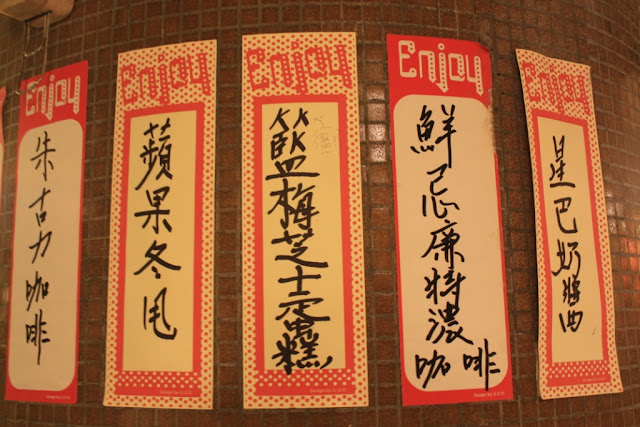 Enjoy
朱古力咖啡
Enjoy
蘋果冬甩
Enjoy
籃梅芝士蛋糕
Enjoy
鮮忌廉特濃
咖啡
Enjoy
星巴奶醬